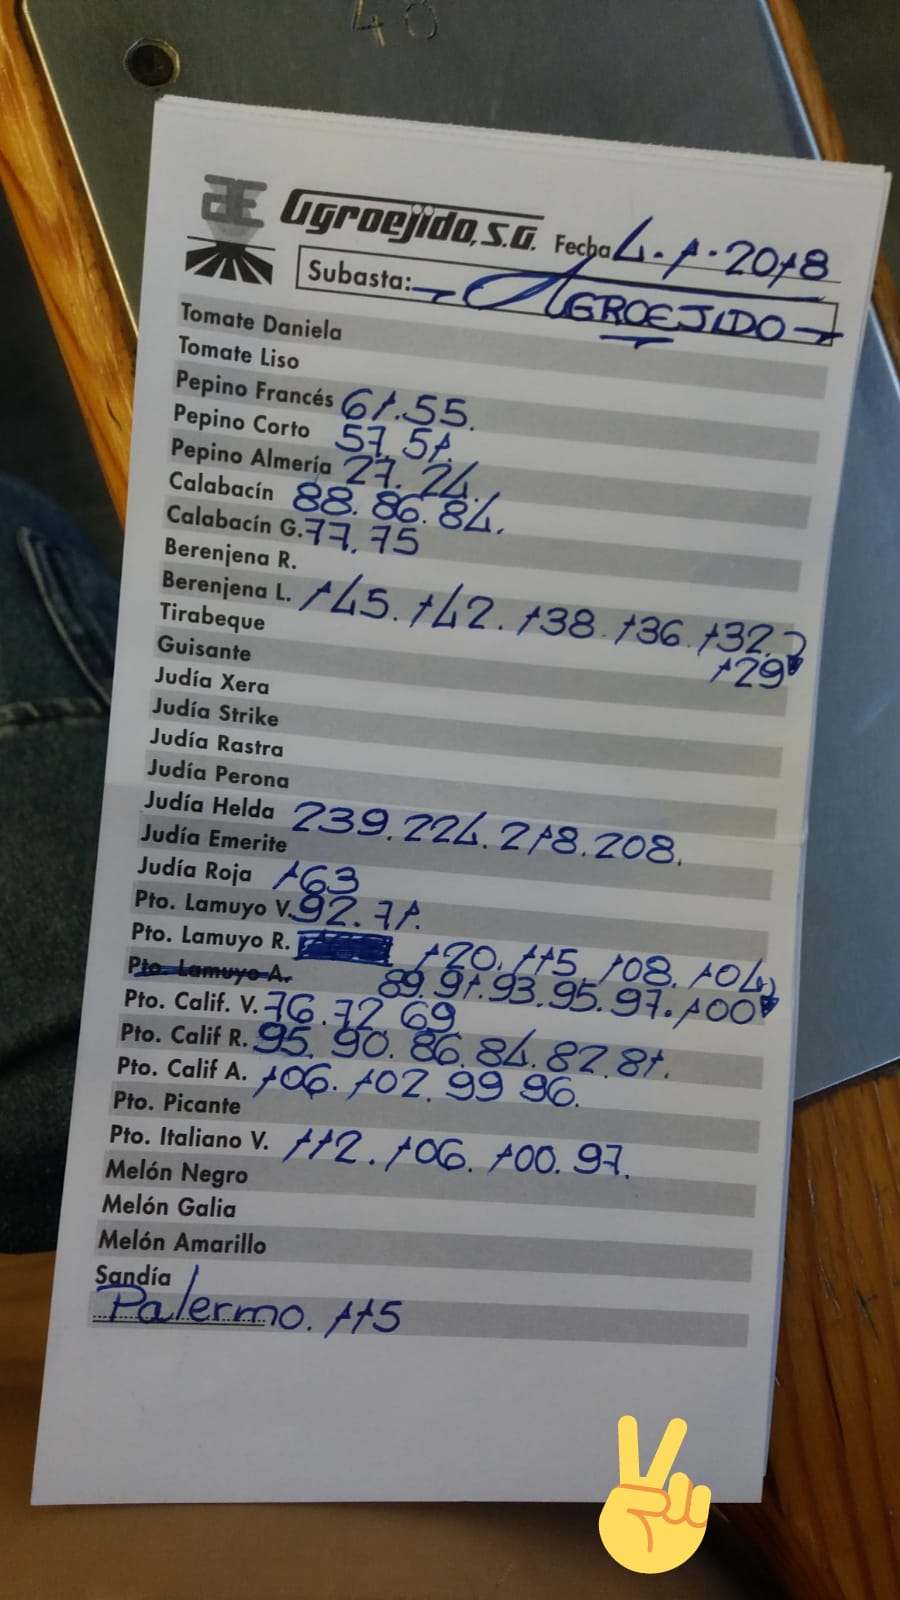 48
Agroejido, S.A. Fecha 4.1.2018
Subasta: AGROEJIDO
Tomate Daniela
Tomate Liso
Pepino Francés 61.55.
Pepino Corto 57.51.
Pepino Almería 27.24.
Calabacín 88.86.84.
Calabacín G. 77.75
Berenjena R.
Berenjena L. 145.142.138.136.132.
129
Tirabeque
Guisante
Judía Xera
Judía Strike
Judía Rastra
Judía Perona
Judía Helda 239.224.218.208.
Judía Emerite
Judía Roja 163
Pto. Lamuyo V. 92.71.
Pto. Lamuyo R. 120.115.108.104
Pto. Lamuyo A. 89.91.93.95.97.100
Pto. Calif. V. 76.72.69
Pto. Calif R. 95.90.86.84.82.81.
Pto. Calif A. 106.102.99 96.
Pto. Picante
Pto. Italiano V. 112.106.100.97.
Melón Negro
Melón Galia
Melón Amarillo
Sandía
Palermo. 115